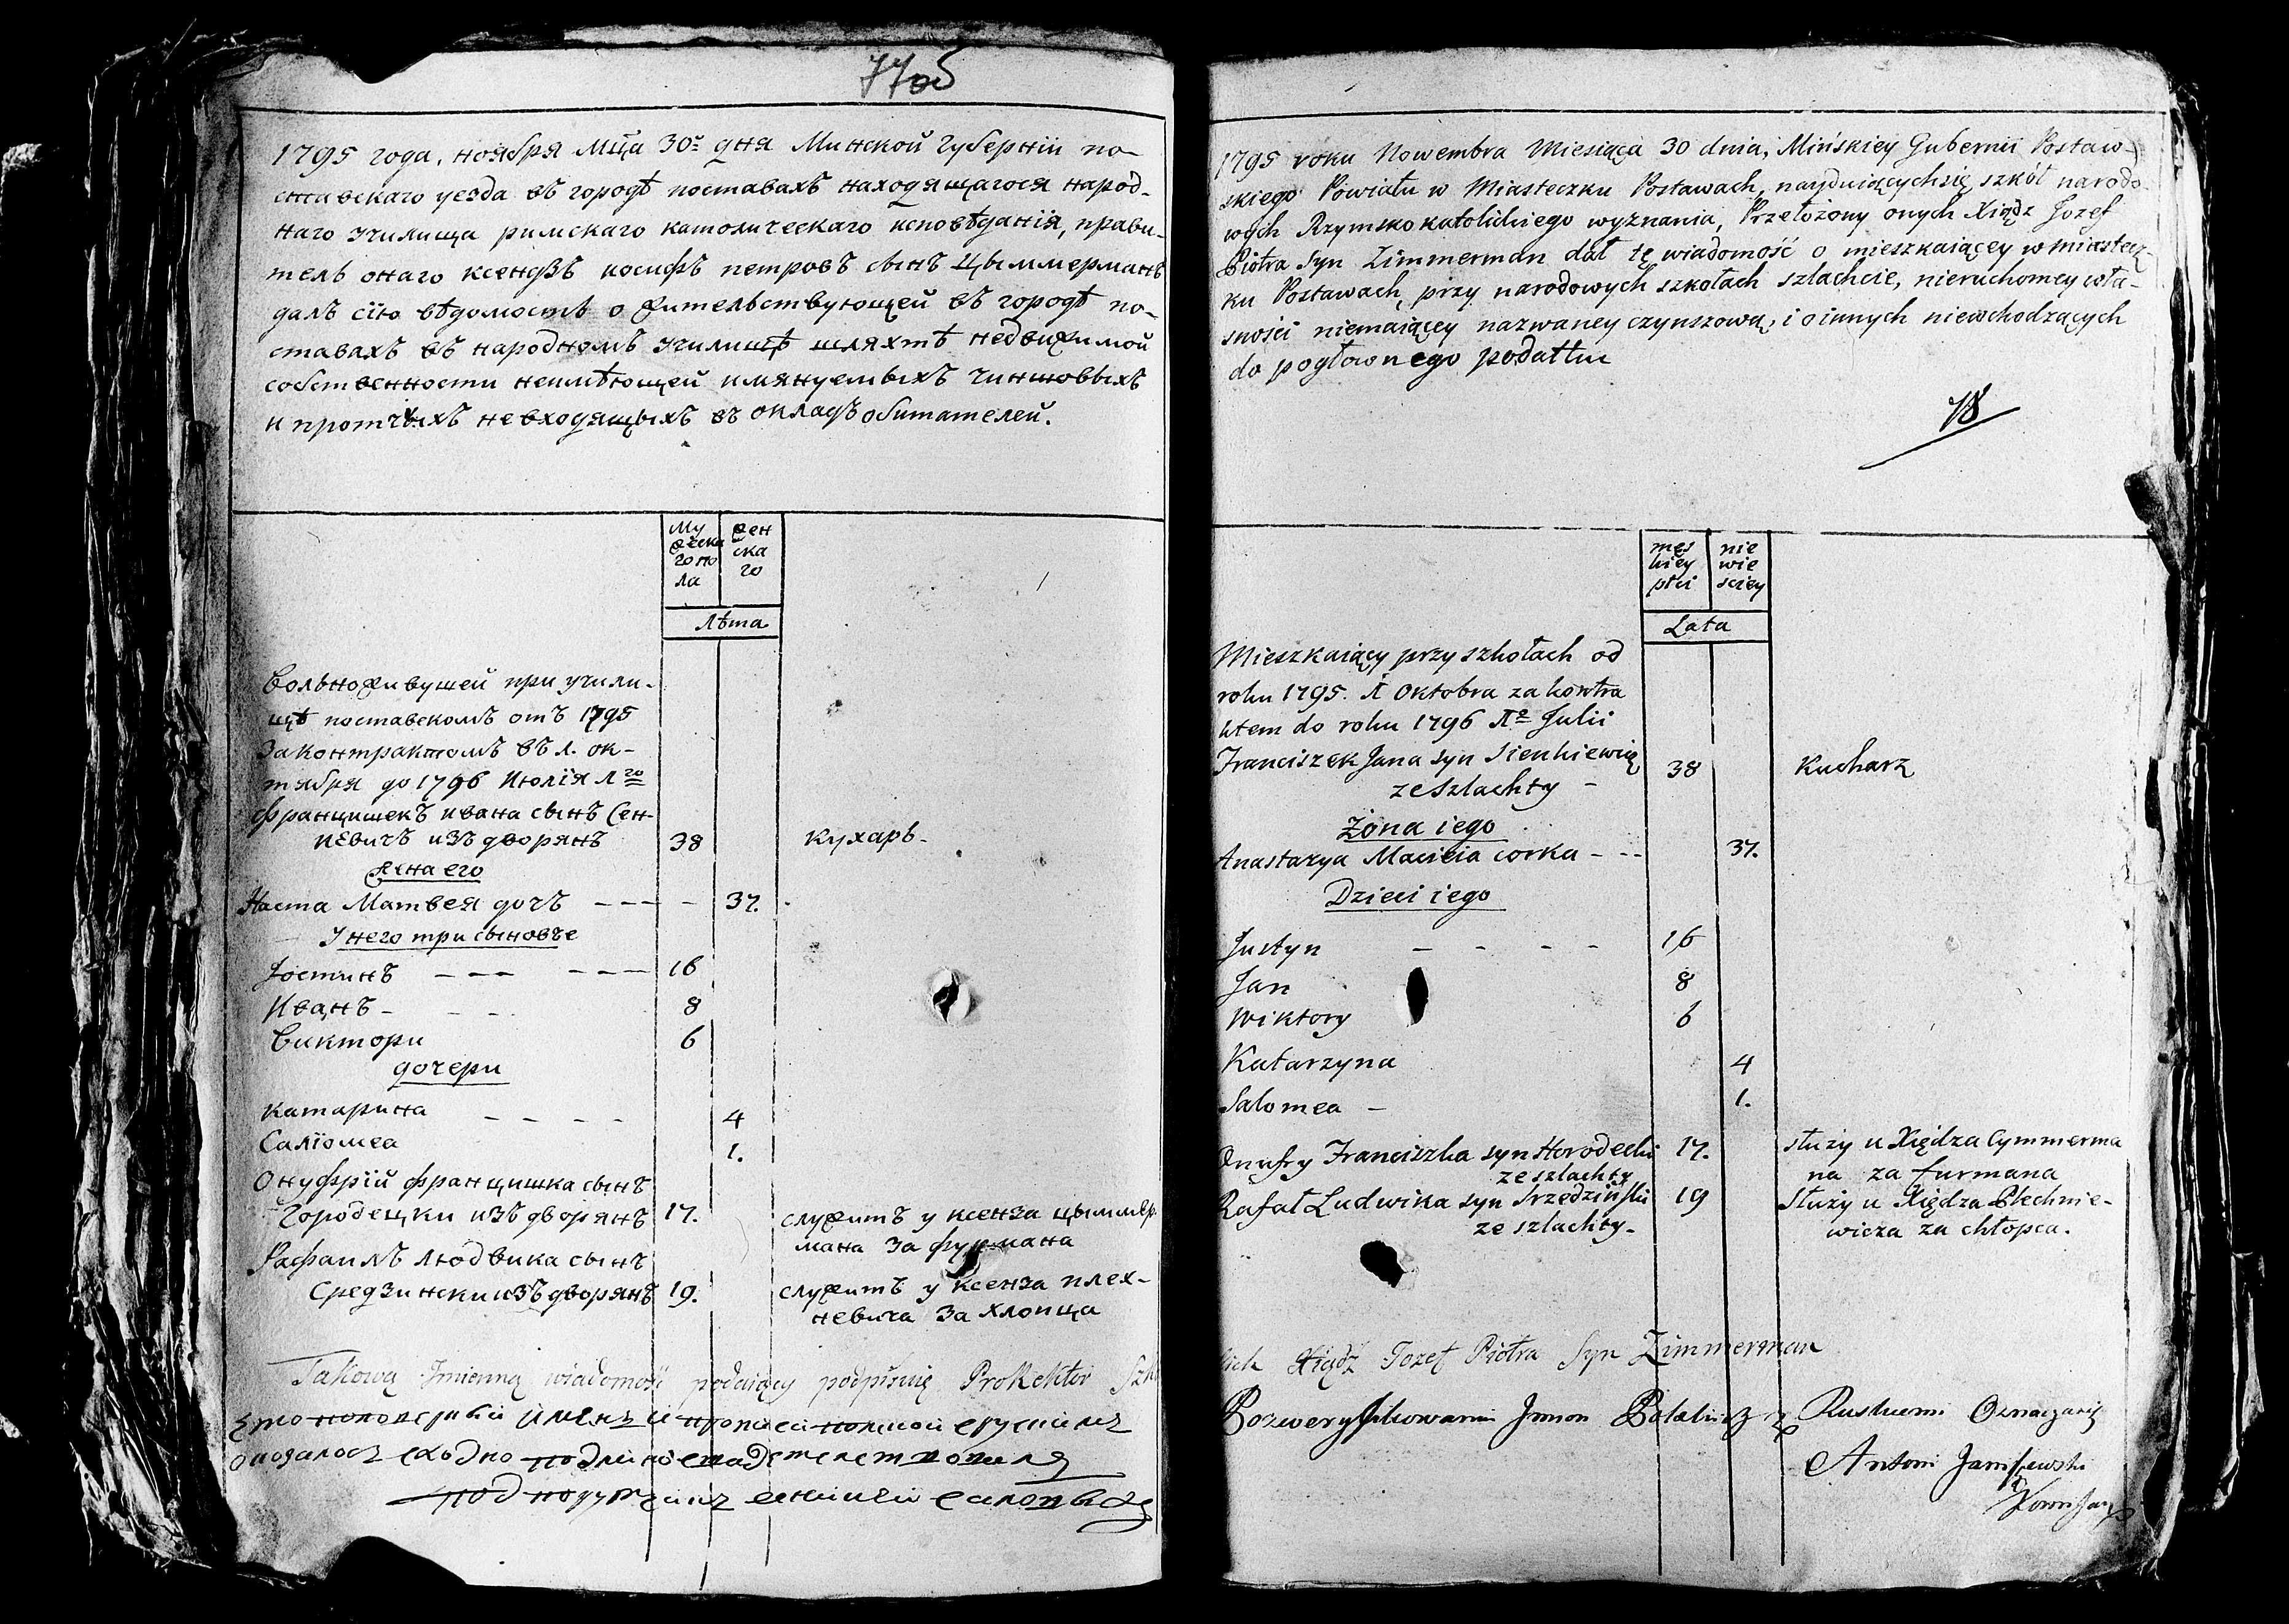 77об
1795 года, ноября Мца 30го дня Минской губернiи по-
ставскаго уезда въ городѣ поставахъ находящагося народ-
наго училища римскаго католическаго исповѣданiя, прави-
тель онаго ксендзъ иосифъ петровъ сынъ Цыммерманъ
далъ сiю вѣдомость о жительствующей въ городѣ по-
ставахъ въ народномъ училищѣ шляхтѣ недвижимой
собственности неимѣющей имянуемыхъ чиншовыхъ
и протчихъ невходящыхъ въ окладъ обитателей.
Му жен
жска ска
го по го
ла
Лѣта
вольноживущей при учили-
щѣ поставскомъ отъ 1795
Законтрактомъ въ 1. ок-
тября до 1796 Июлiя 1го
францишекъ ивана сынъ Сен-
кевичъ изъ дворянъ 38 кухарь-
жена его
Наста Матвея дочъ 37.
У него три сыновъе
Юстинъ 16
Иванъ 8
Виктори 6
дочери
Катарина 4
Салiомеа 1.
Онуфрiй францишка сынъ
Городецки изъ дворянъ 17. служитъ у ксенза цыммер-
мана За фурмана
Рафаилъ людвика сынъ
Средзински изъ дворянъ 19. служитъ у ксенза плех-
невича За хлопца
Takową Imienną wiadomość podaiący podpisuię Prorektor Szk
1795 roku Nowembra Miesiąca 30 dnia, Mińskiey Gubernii Postaw-
skiego Powiatu w Miasteczku Postawach, nayduiących się szkół narodo-
wych Rzymsko katolickiego wyznania, Przełożony onych Xiądz Jozef
Piotra Syn Zimmerman dał tę wiadomość o mieszkaiącey w miastecz-
ku Postawach, przy narodowych szkołach szlachcie, nieruchomey wła-
sności niemaiącey nazwaney czynszową, i o innych niewchodzących
do pogłownego podatku
78
męs nie
kiey wie
płci sciey
Lata
Mieszkaiący przy szkołach od
roku 1795. 1 Oktobra za kontra
ktem do roku 1796 1o Julii
Franciszek Jana syn Sienkiewicz
ze szlachty 38 Kucharz
Żona iego
Anastazya Macieia corka 37.
Dzieci iego
Justyn 16
Jan 8
Wiktory 6
Katarzyna 4
Salomea 1.
Onufry Franciszka syn Horodecki 17. służy u Xiędza Cymmerma
ze szlachty na za furmana
Rafał Ludwika syn Srzedziński 19 Służy u Xiędza Plechnie-
ze szlachty wicza za chłopca.
Xiądz Jozef Piotra Syn Zimmerman
Antoni